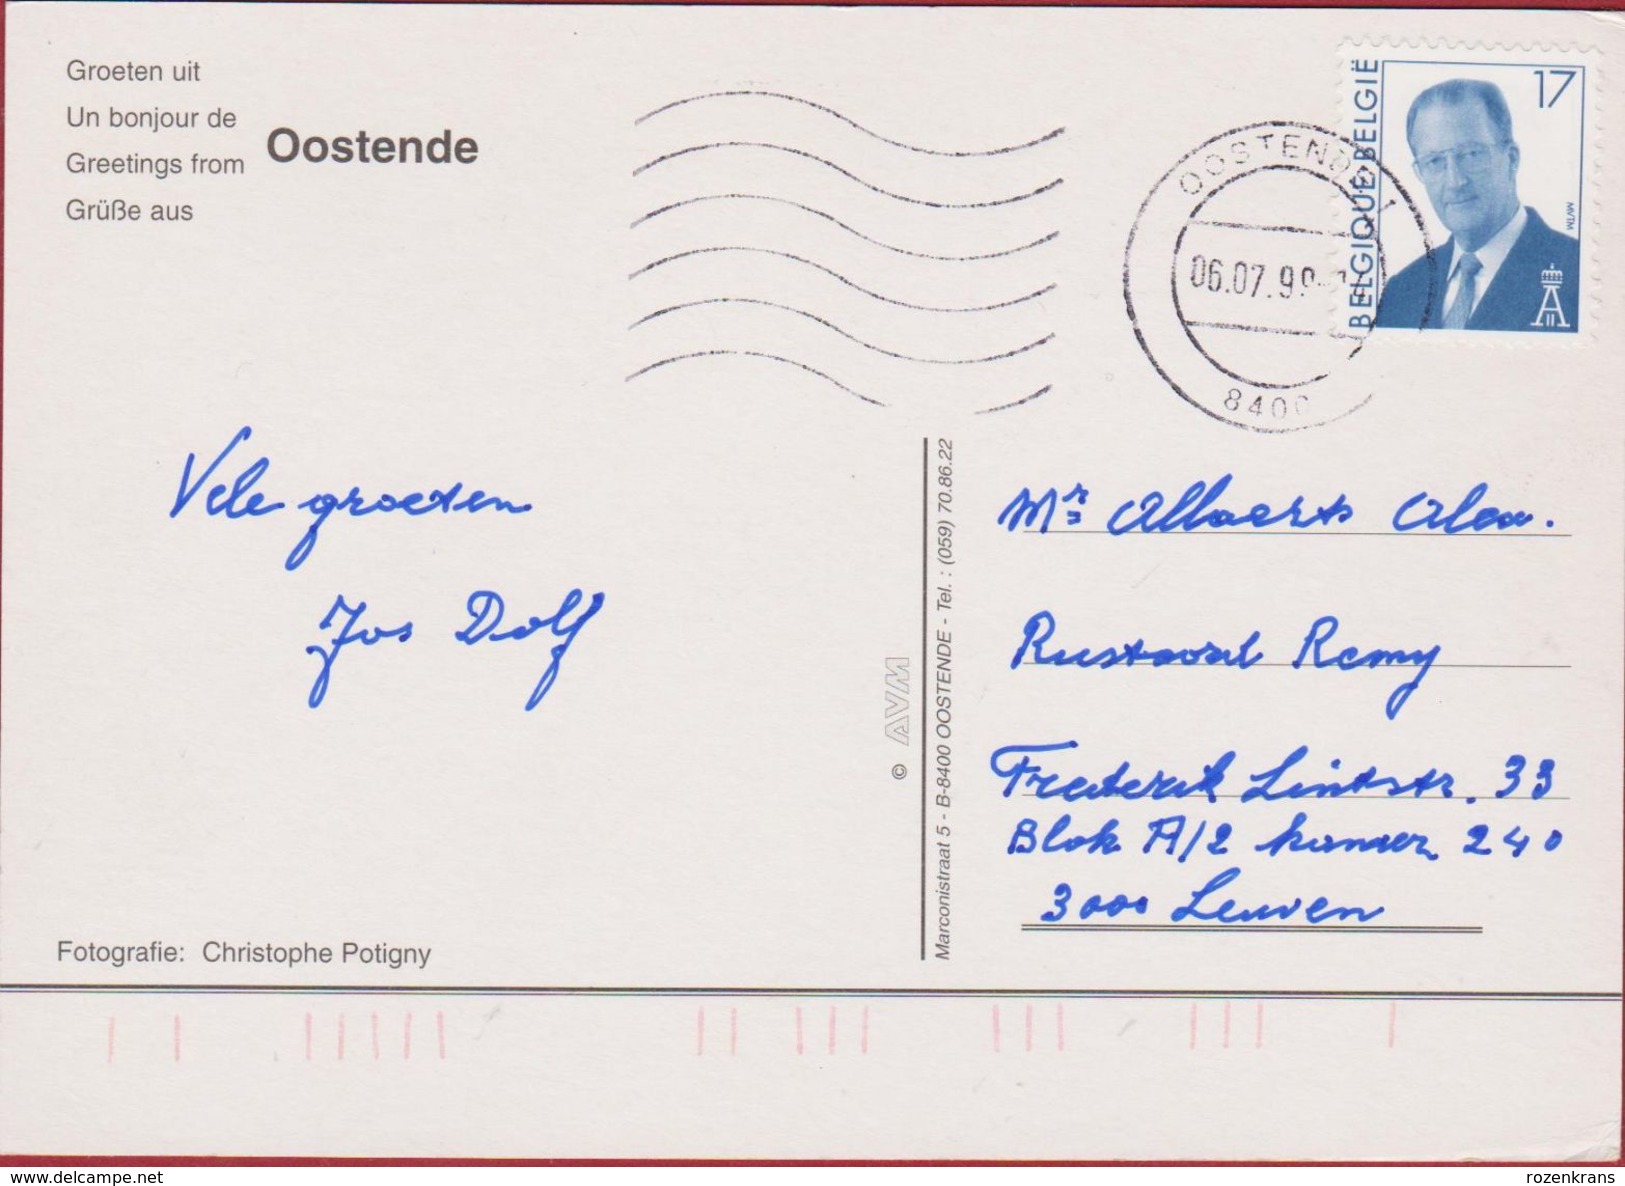 Groeten uit
Un bonjour de
Greetings from
Grüße aus
Oostende
OOSTENDE 1
06.07.99
8400
BELGIQUE BELGIË
17
MVTM
Vele groeten
Jos Dolf
Mr Allaerts Alex.
Rustoord Remy
Frederik Lintstr. 33
Blok A/2 kamer 240
3000 Leuven
© AVM
Marconistraat 5 - B-8400 OOSTENDE - Tel. : (059) 70.86.22
Fotografie: Christophe Potigny
rozenkrans